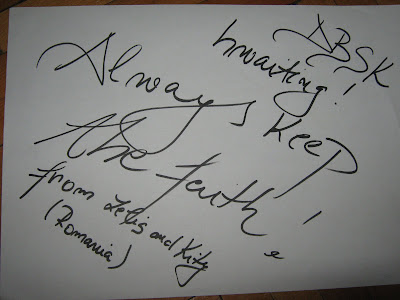 DBSK
hwaiting!
Always Keep
the faith!
from Letis and Kity
(Romania)